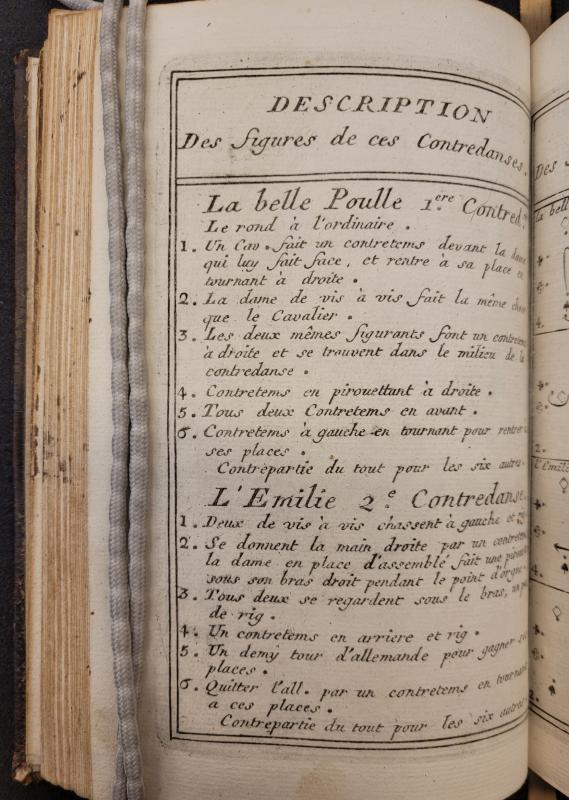 DESCRIPTION
Des figures de ces Contredanses.
La belle Poulle 1.ere Contred.
Le rond à l'ordinaire.
1. Un Cav. fait un contretems devant la dame
qui luy fait face, et rentre à sa place en
tournant à droite.
2. La dame de vis à vis fait la même chose
que le Cavalier.
3. Les deux mêmes figurants font un contretems
à droite et se trouvent dans le milieu de la
contredanse.
4. Contretems en pirouettant à droite.
5. Tous deux Contretems en avant.
6. Contretems à gauche en tournant pour rentrer
ses places.
Contrepartie du tout pour les six autres.
L'Emilie 2.e Contredanse.
1. Deux de vis à vis chassent à gauche et
2. Se donnent la main droite par un contretems
la dame en place d'assemblé fait une pirouette
sous son bras droit pendant le point d'orgue.
3. Tous deux se regardent sous le bras, un
de rig.
4. Un contretems en arriere et rig.
5. Un demy tour d'allemande pour gagner
places.
6. Quitter l'all. par un contretems en tournant
a ces places.
Contrepartie du tout pour les six autres
Des
la bell
4.
2.
l'Emili
4.
2.